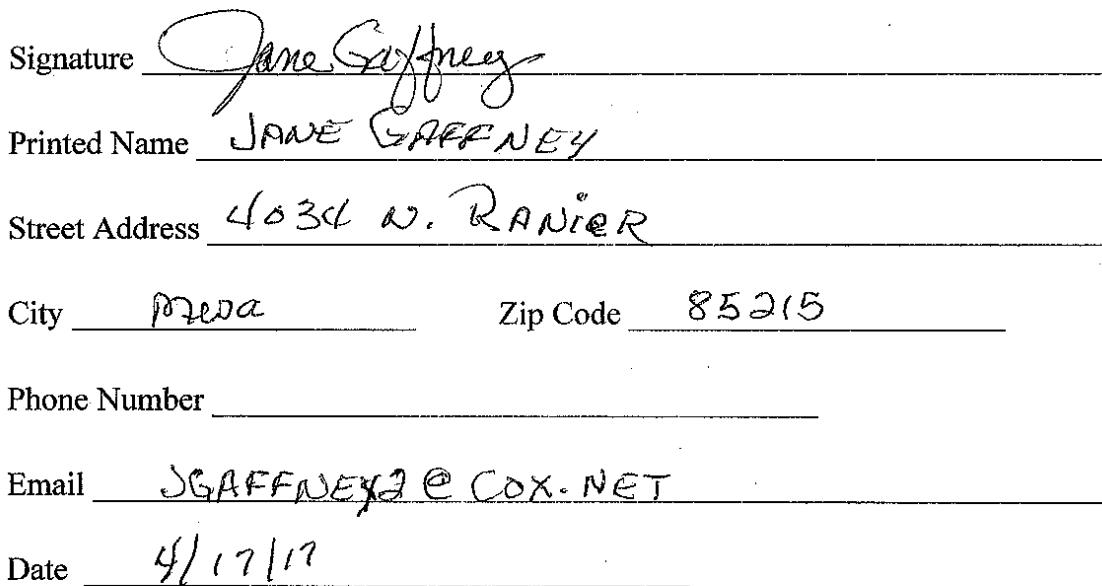 Signature Jane Gaffney
Printed Name JANE GAFFNEY
Street Address 4034 N. RANIER
City Mesa Zip Code 85215
Phone Number
Email JGAFFNEY2@COX.NET
Date 4/17/17